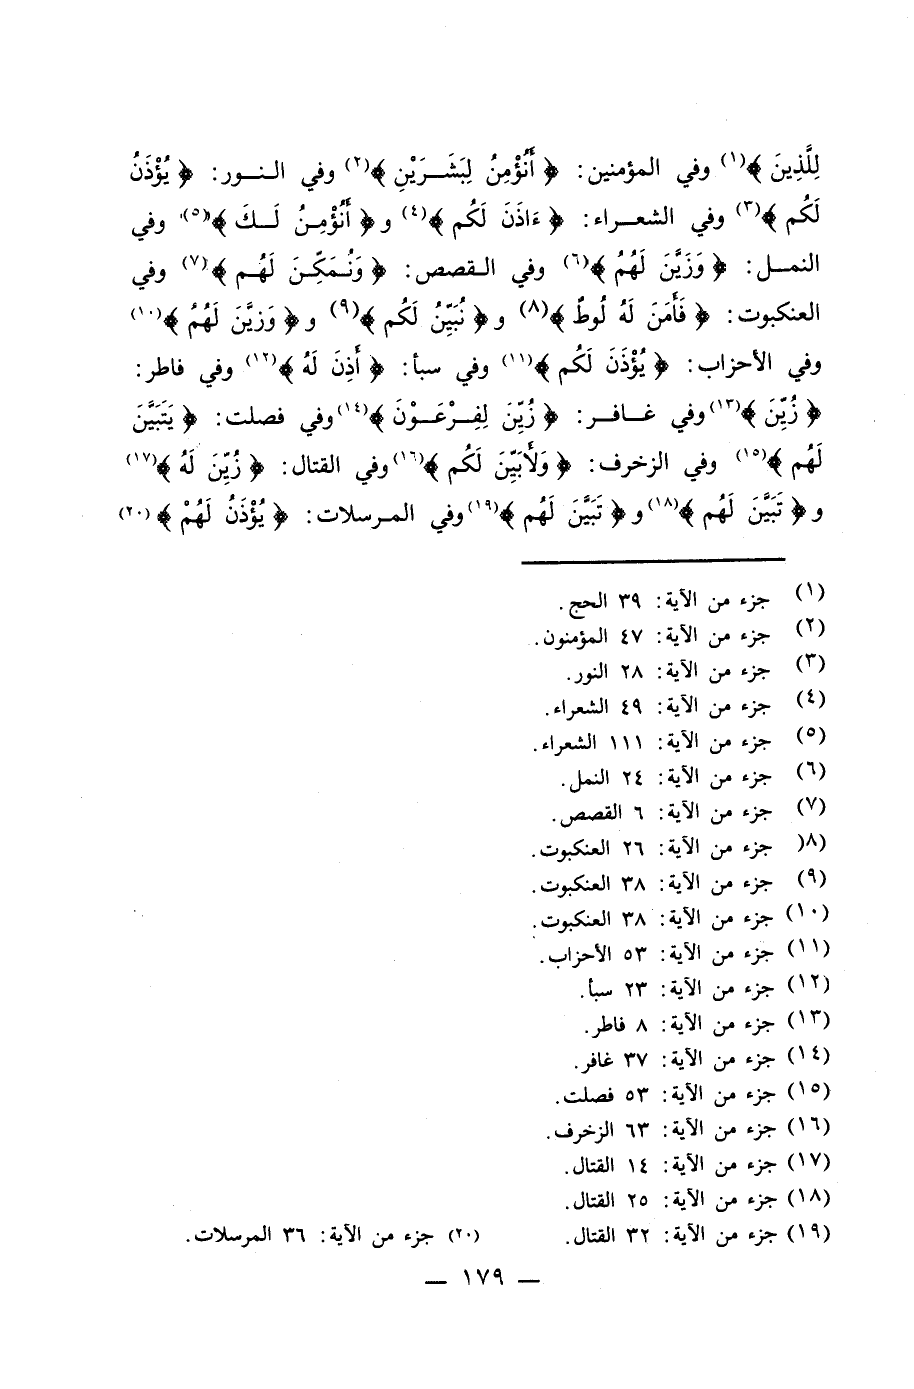 لِلَّذِينَ ﴾(١) وفي المؤمنين: ﴿ أَنُؤْمِنُ لِبَشَرَيْنِ ﴾(٢) وفي النور: ﴿ يُؤْذَنُ
لَكُم ﴾(٣) وفي الشعراء: ﴿ ءَاذَنَ لَكُم ﴾(٤) و﴿ أَنُؤْمِنُ لَكَ ﴾(٥) وفي
النمل: ﴿ وَزَيَّنَ لَهُمُ ﴾(٦) وفي القصص: ﴿ وَنُمَكِّنَ لَهُم ﴾(٧) وفي
العنكبوت: ﴿ فَأَمَنَ لَهُ لُوطٌ ﴾(٨) و﴿ نُبَيِّنُ لَكُم ﴾(٩) و﴿ وَزيَّنَ لَهُمُ ﴾(١٠)
وفي الأحزاب: ﴿ يُؤْذَنَ لَكُم ﴾(١١) وفي سبأ: ﴿ أَذِنَ لَهُ ﴾(١٢) وفي فاطر:
﴿ زُيِّنَ ﴾(١٣) وفي غافر: ﴿ زُيِّنَ لِفِرْعَوْنَ ﴾(١٤) وفي فصلت: ﴿ يَتَبَيَّنَ
لَهُم ﴾(١٥) وفي الزخرف: ﴿ وَلأَبَيِّنَ لَكُم ﴾(١٦) وفي القتال: ﴿ زُيِّنَ لَهُ ﴾(١٧)
و﴿ تَبَيَّنَ لَهُم ﴾(١٨) و﴿ تَبَيَّنَ لَهُم ﴾(١٩) وفي المرسلات: ﴿ يُؤْذَنُ لَهُمْ ﴾(٢٠)
(١) جزء من الآية: ٣٩ الحج.
(٢) جزء من الآية: ٤٧ المؤمنون.
(٣) جزء من الآية: ٢٨ النور.
(٤) جزء من الآية: ٤٩ الشعراء.
(٥) جزء من الآية: ١١١ الشعراء.
(٦) جزء من الآية: ٢٤ النمل.
(٧) جزء من الآية: ٦ القصص.
(٨) جزء من الآية: ٢٦ العنكبوت.
(٩) جزء من الآية: ٣٨ العنكبوت.
(١٠) جزء من الآية: ٣٨ العنكبوت.
(١١) جزء من الآية: ٥٣ الأحزاب.
(١٢) جزء من الآية: ٢٣ سبأ.
(١٣) جزء من الآية: ٨ فاطر.
(١٤) جزء من الآية: ٣٧ غافر.
(١٥) جزء من الآية: ٥٣ فصلت.
(١٦) جزء من الآية: ٦٣ الزخرف.
(١٧) جزء من الآية: ١٤ القتال.
(١٨) جزء من الآية: ٢٥ القتال.
(١٩) جزء من الآية: ٣٢ القتال. (٢٠) جزء من الآية: ٣٦ المرسلات.
— ١٧٩ —